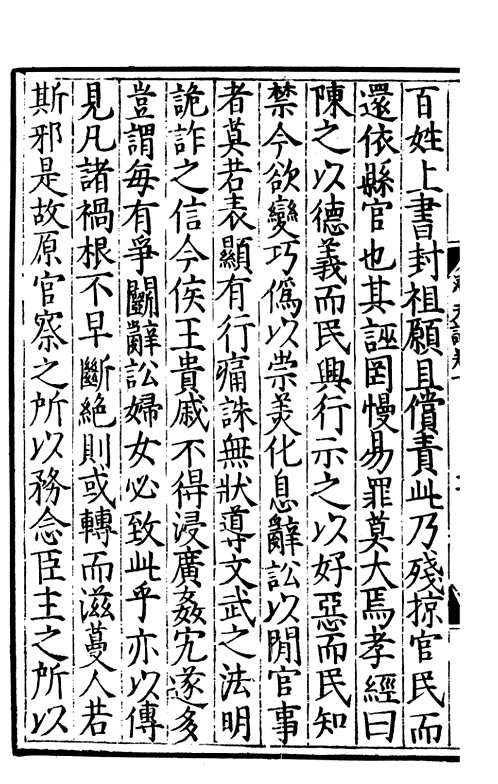 百姓上書封祖願且償責此乃殘掠官民而
還依縣官也其誣罔慢易罪莫大焉孝經曰
陳之以德義而民興行示之以好惡而民知
禁今欲變巧僞以崇美化息辭訟以閒官事
者莫若表顯有行痛誅無狀導文武之法明
詭詐之信今侯王貴戚不得浸廣姦宄遂多
豈謂每有爭鬭辭訟婦女必致此乎亦以傳
見凡諸禍根不早斷絶則或轉而滋蔓人若
斯邪是故原官察之所以務念臣主之所以